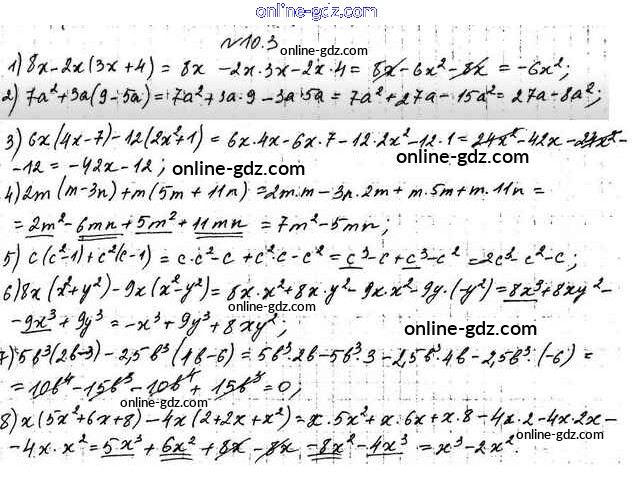 online-gdz.com
№10.3
online-gdz.com
1) 8x-2x(3x+4) = 8x -2x·3x-2x·4= 8x-6x²-8x = -6x²;
2) 7a²+3a(9-5a)=7a²+3a·9-3a·5a = 7a²+27a-15a²= 27a-8a²;
online-gdz.com
3) 6x(4x-7)-12(2x²+1) = 6x·4x-6x·7-12·2x²-12·1= 24x²-42x-24x²-
-12 = -42x-12; online-gdz.com online-gdz.com
4) 2m(m-3n)+m(5m+11n) =2m·m-3n·2m+m·5m+m·11n =
= 2m²-6mn+5m²+11mn = 7m²-5mn; online-gdz.com
5) c(c²-1)+c²(c-1) = c·c²-c+c²·c-c²=c³-c+c³-c² =2c³-c²-c;
6) 8x(x²+y²)-9x(x²-y²)= 8x·x²+8x·y²-9x·x²-9y·(-y²)=8x³+8xy²-
online-gdz.com
-9x³+9y³=-x³+9y³+8xy²; online-gdz.com
7) 5b³(2b-3)-2,5b³(4b-6)=5b³·2b-5b³·3-2,5b³·4b-2,5b³·(-6) =
= 10b⁴-15b³-10b⁴+15b³=0; online-gdz.com
8) x(5x²+6x+8)-4x(2+2x+x²)=x·5x²+x·6x+x·8-4x·2-4x·2x-
-4x·x²=5x³+6x²+8x-8x-8x²-4x³ = x³-2x². online-gdz.com